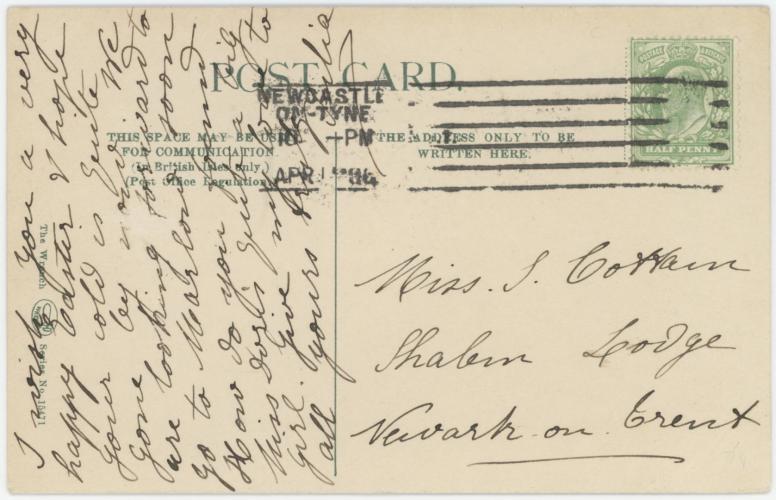 POST CARD.
NEWCASTLE
ON-TYNE
10 -PM
APR
POSTAGE REVENUE
HALF PENNY
THIS SPACE MAY BE USED
FOR COMMUNICATION.
(In British Isles only.)
(Post Office Regulation.)
THE ADDRESS ONLY TO BE
WRITTEN HERE.
The Wrench
Series No. 15471
I wish you a very
happy Easter I hope
your cold is quite
gone by now. We
are looking forward to
go to Marlow soon
How do you find
Miss Doris quite a big
girl. Give my love to
all yours
Miss. S. Cottam
Lodge
Newark on Trent